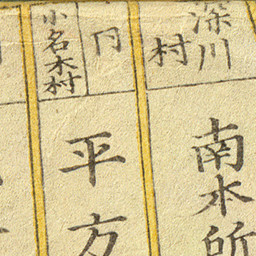 深川村
南本所
円
小名木村
平方